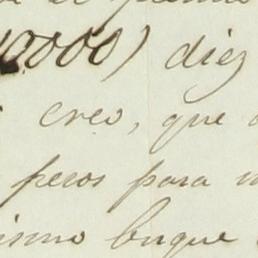 10.000) diez
creo, que
pesos para
ismo buque